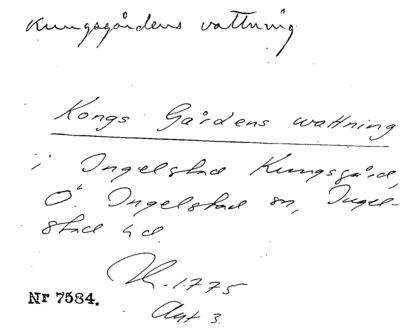 Kungsgårdens vattning
Kongs Gårdens wattning
i Ingelstad Kungsgård,
Ö. Ingelstad sn, Ingel-
stad hd
1775
Nr 7584.
Akt 3.